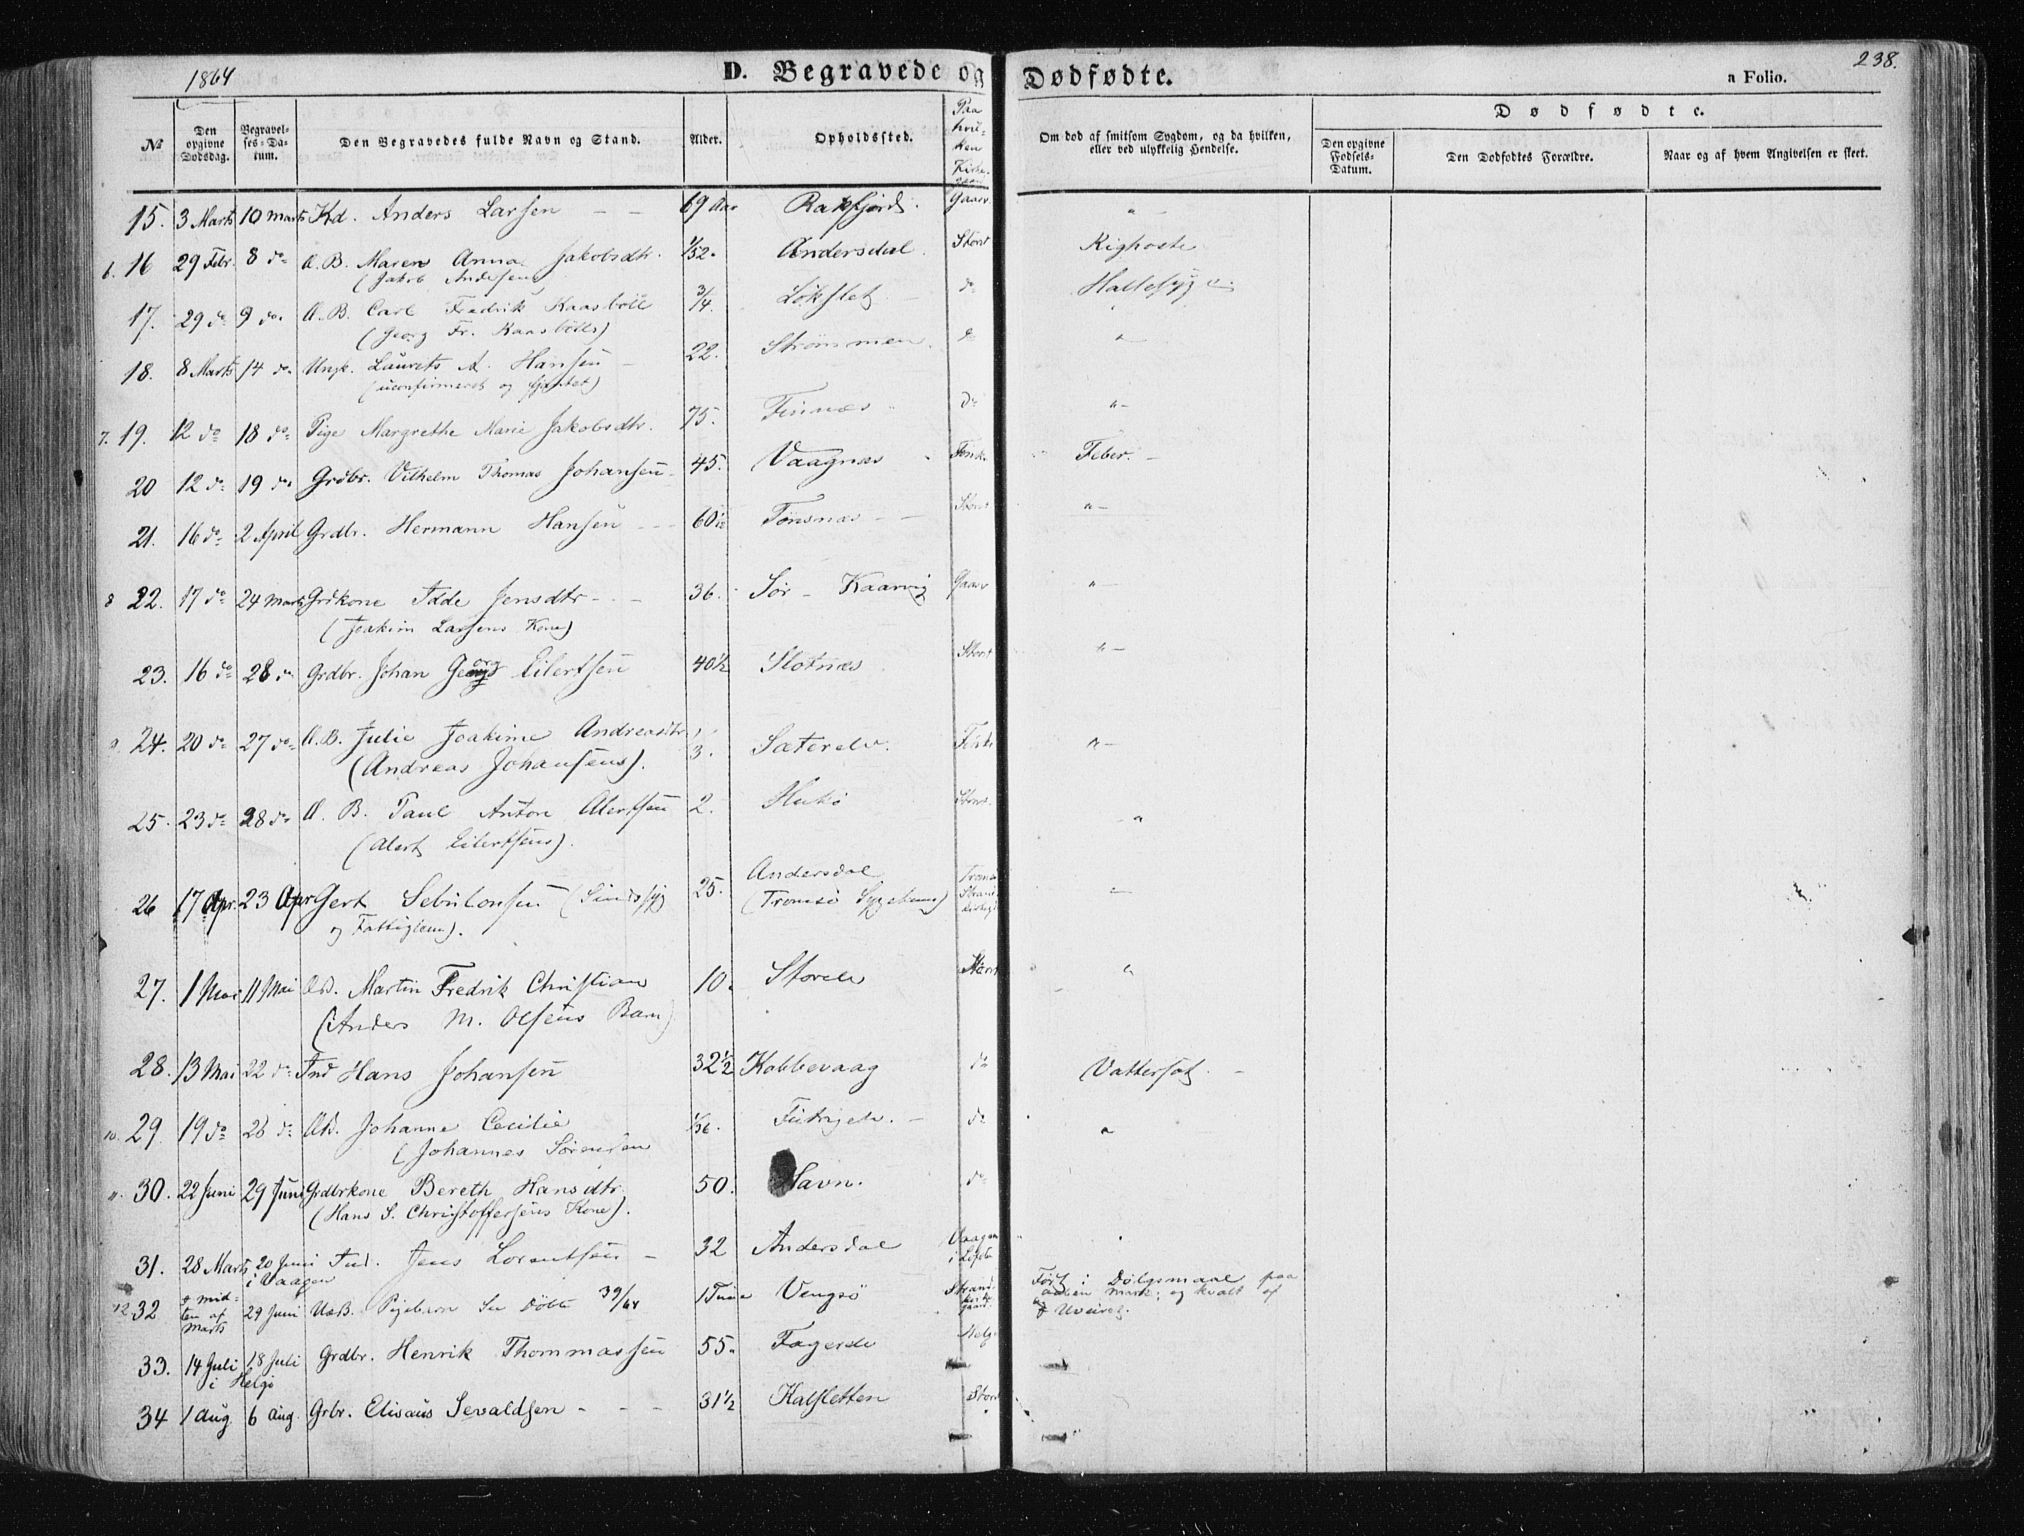 1864
D. Begravede og Dødfødte.
238.
a Folio.
No
Den opgivne Dødsdag.
Begravelses-Datum.
Den Begravedes fulde Navn og Stand.
Alder.
Opholdssted.
Paa hvilken Kirkegaard
Om død af smitsom Sygdom, og da hvilken, eller ved ulykkelig Hendelse.
Dødfødte.
Den opgivne Fødsels-Datum.
Den Dødfødtes Forældre.
Naar og af hvem Angivelsen er skeet.
15. 3 Marts 10 Marts Kd. Anders Larsen - - 69 Aar Rakfjord. Gaasv " -
6. 16 29 Febr. 8 do A. B. Maren Anna Jakobsdtr. 1/52. Andersdal. Storst Kighoste
(Jakob Andersens
17. 29 do 9 do. A. B. Carl Fredrik Kaasbøll 3/4. Løkslet - do Hallesyge
(Georg Fr. Kaasbølls)
18. 8 Marts 14 do. Ungk. Laurits A. Hansen - 22. Strømmen. do " -
(uconfirmeret og
7. 19. 12 do 18 do Pige Margrethe Marie Jakobsdtr. 75. Finnæs do " -
20 12 do 19 do Grdbr. Vilhelm Thomas Johansen - 45. Vaagnæs Fink. Feber. -
21. 16 do 2 April Grdbr. Hermann Hansen - - 60 1/2 Tønsnæs - - Storst " -
8 22. 17 do 24 Marts Grdkone Idde Jensdtr - - 36. Sør - Kaarvig Gaasv " -
(Joakim Larsens Kone)
23. 16 do 28 do Grdbr. Johan Georg Eilertsen 40 1/2 Slotnæs Storst " -
9. 24. 20 do 27 do A. B. Julie Joakime Andreasdtr 1/3. Sæterelv. " -
(Andreas Johansens).
25. 23 do 28 do A. B. Paul Anton Alertsen 2. Storst. - "
(Alert Eilertsens).
26 17 Apr. 23 Apr Gert Sebulonsen (Sindssyg 25. Andersdal
og Fattiglem). (Tromsø Sygehuus)
27. 1 Mai 11 Mai Martin Fredrik Christian 10. Storelv "
(Anders M. Olsens Barn)
28. 13 Mai 22 do Ind Hans Johansen 32 1/2 Kobbevaag do Vattersot. -
10. 29. 19 do 26 do Johanne Cecilie 1/36. - do "
(Johannes Sørensen
11. 30. 22 Juni 29 Juni Grdbrkone Bereth Hansdtr. 50. Havn. do
(Hans S. Christoffersens Kone).
31. 28 Marts 20 Juni Ind. Jens Lorentsen - 32 Andersdal
i Vaagen
12. 32 midten af Marts 29 Juni Pigebarn Se Døbte 39/64 1 Time Vengsø Strand kirkegaard. Født i Dølgsmaal paa aaben Mark, og kvalt af Uveiret.
33. 14 Juli 18 Juli Grdbr. Henrik Thommassen 55. Helgø
i Helgø
34 1 Aug 6 Aug. Grbr. Elisæus Sevaldsen - - - 31 1/2 Kalsletten Storst